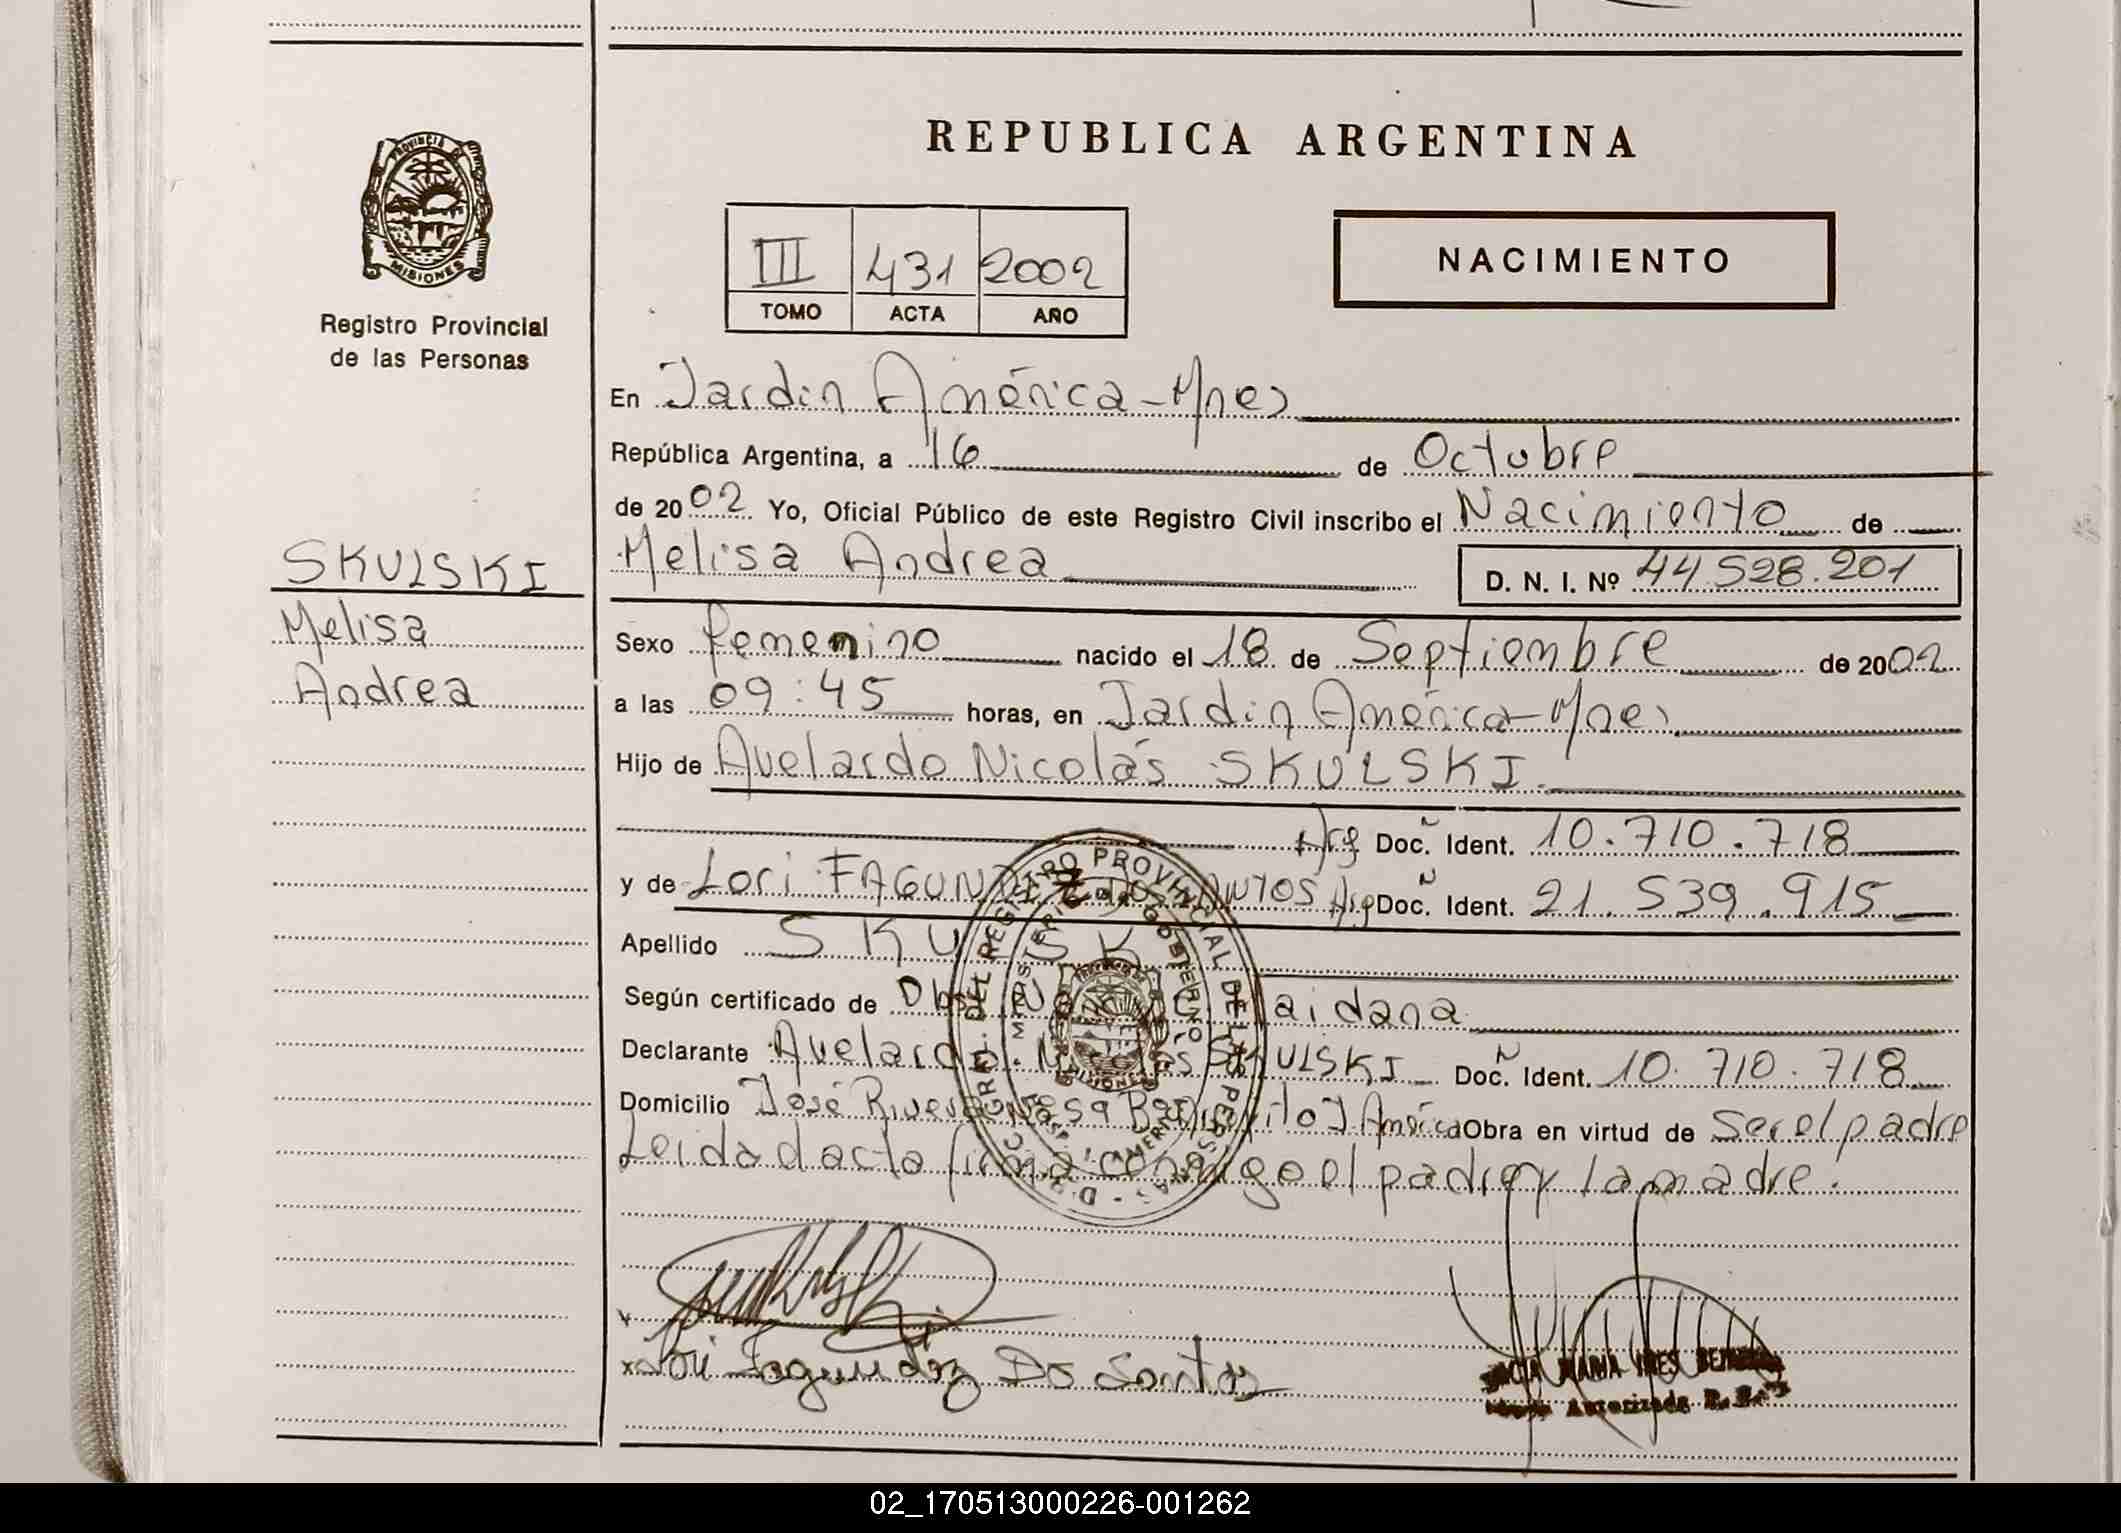 REPUBLICA ARGENTINA
PROVINCIA DE MISIONES
Registro Provincial
de las Personas
III 431 2002
TOMO ACTA AÑO
NACIMIENTO
En Jardin América-Mnes
República Argentina, a 16 de Octubre
de 2002 Yo, Oficial Público de este Registro Civil inscribo el Nacimiento de
SKULSKI
Melisa
Andrea
Melisa Andrea D. N. I. Nº 44.528.201
Sexo femenino nacido el 18 de Septiembre de 2002
a las 09:45 horas, en Jardin América-Mnes
Hijo de Avelardo Nicolás SKULSKI
Arg Doc. Ident. 10.710.718
y de Lori FAGUNDEZ DOS SANTOS Arg Doc. Ident. 21.539.915
Apellido SKULSKI
Según certificado de Obst. Maidana
Declarante Avelardo Nicolás SKULSKI Doc. Ident. 10.710.718
Domicilio José Rivero J América Obra en virtud de Ser el padre
Leida el acta firma conmigo el padre y la madre.
Lori Fagundez Do Santos
MARIA INES
Autorizada
02_170513000226-001262